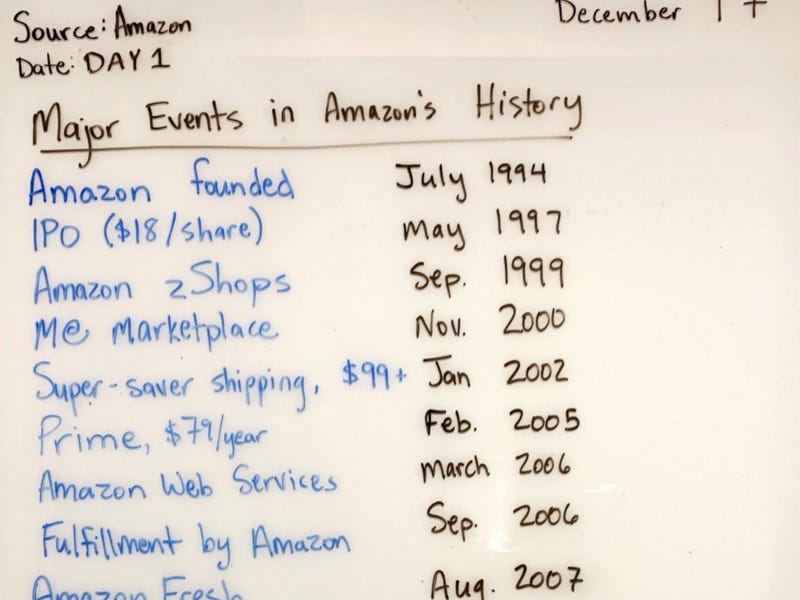 Source: Amazon
December 17
Date: DAY 1
Major Events in Amazon's History
Amazon founded July 1994
IPO ($18/share) May 1997
Amazon zShops Sep. 1999
M@ Marketplace Nov. 2000
Super-saver shipping, $99+ Jan 2002
Prime, $79/year Feb. 2005
Amazon Web Services March 2006
Fulfillment by Amazon Sep. 2006
Amazon Fresh Aug. 2007